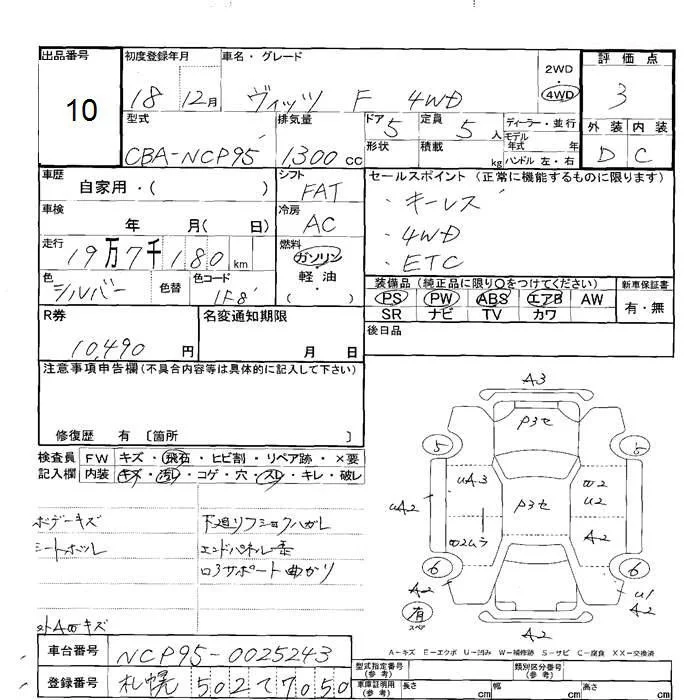 出品番号 初度登録年月 車名・グレード 評価点
10 18 12月 ヴィッツ F 4WD 2WD 4WD 3
型式 排気量 ドア 定員 ディーラー・並行 外装 内装
CBA-NCP95 1,300 cc 5 5 人 モデル年式 年 D C
形状 積載 kg ハンドル 左・右
車歴 シフト セールスポイント (正常に機能するものに限ります)
自家用・( ) FAT ・キーレス
車検 冷房 ・4WD
年 月( 日) AC ・ETC
走行 燃料
19万7千180km ガソリン・軽油・( )
色 色替 色コード 装備品 (純正品に限り○をつけてください) 新車保証書
シルバー 1F8 PS PW ABS エアB AW 有・無
SR ナビ TV カワ
R券 名変通知期限 後日品
10,490 円 月 日
注意事項申告欄(不具合内容等は具体的に記入して下さい)
修復歴 有 〔箇所 〕
検査員 FW キズ・飛石・ヒビ割・リペア跡・×要
記入欄 内装 キズ・汚レ・コゲ・穴・スレ・キレ・破レ
ボデーキズ 下廻リフショックハガレ
シートホツレ エンドパネル歪
ロアサポート曲がり
A3
P3セ
5 5
uA3 ω2
u2
uA2 P3セ
ω2uラ A2
6 6
A2 u1
A2
有
スペア
A2
A-キズ E-エクボ U-凹み W-補修跡 S-サビ C-腐食 XX-交換済
車台番号 NCP95-0025243
登録番号 札幌 502 7050
型式指定番号(参考) 類別区分番号(参考)
車庫証明用(参考) 長さ cm 幅 cm 高さ cm